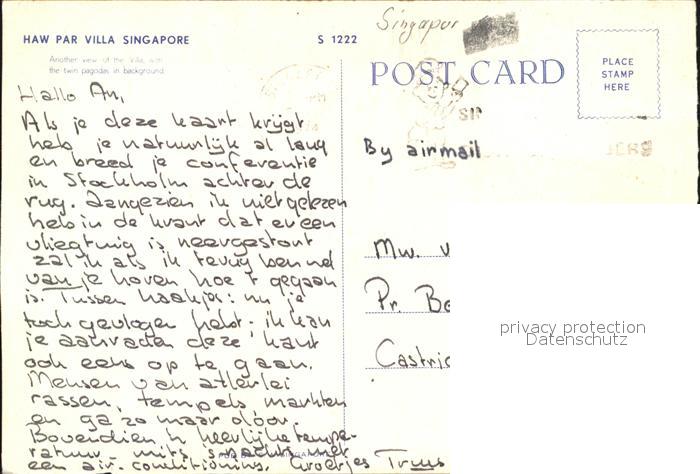 Singapur
HAW PAR VILLA SINGAPORE
S 1222
Another view of the Villa with
the twin pagodas in background
POST CARD
PLACE
STAMP
HERE
Hallo An,
Als je deze kaart krijgt
heb je natuurlijk al lang
en breed je conferentie
in Stockholm achter de
rug. Aangezien ik niet gelezen
heb in de krant dat er een
vliegtuig is neergestort
zal ik als ik terug ben wel
van je horen hoe 't gegaan
is. Tussen haakjes: nu je
toch gevlogen hebt: ik kan
je aanraden deze kant
ook eens op te gaan.
Mensen van allerlei
rassen, tempels, markten
en ga zo maar door.
Bovendien 'n heerlijke tempe-
ratuur - mits 's nachts met
een air-conditioning. Groetjes Truus
By airmail
Mw. v
Pr. Be
Castric
privacy protection
Datenschutz